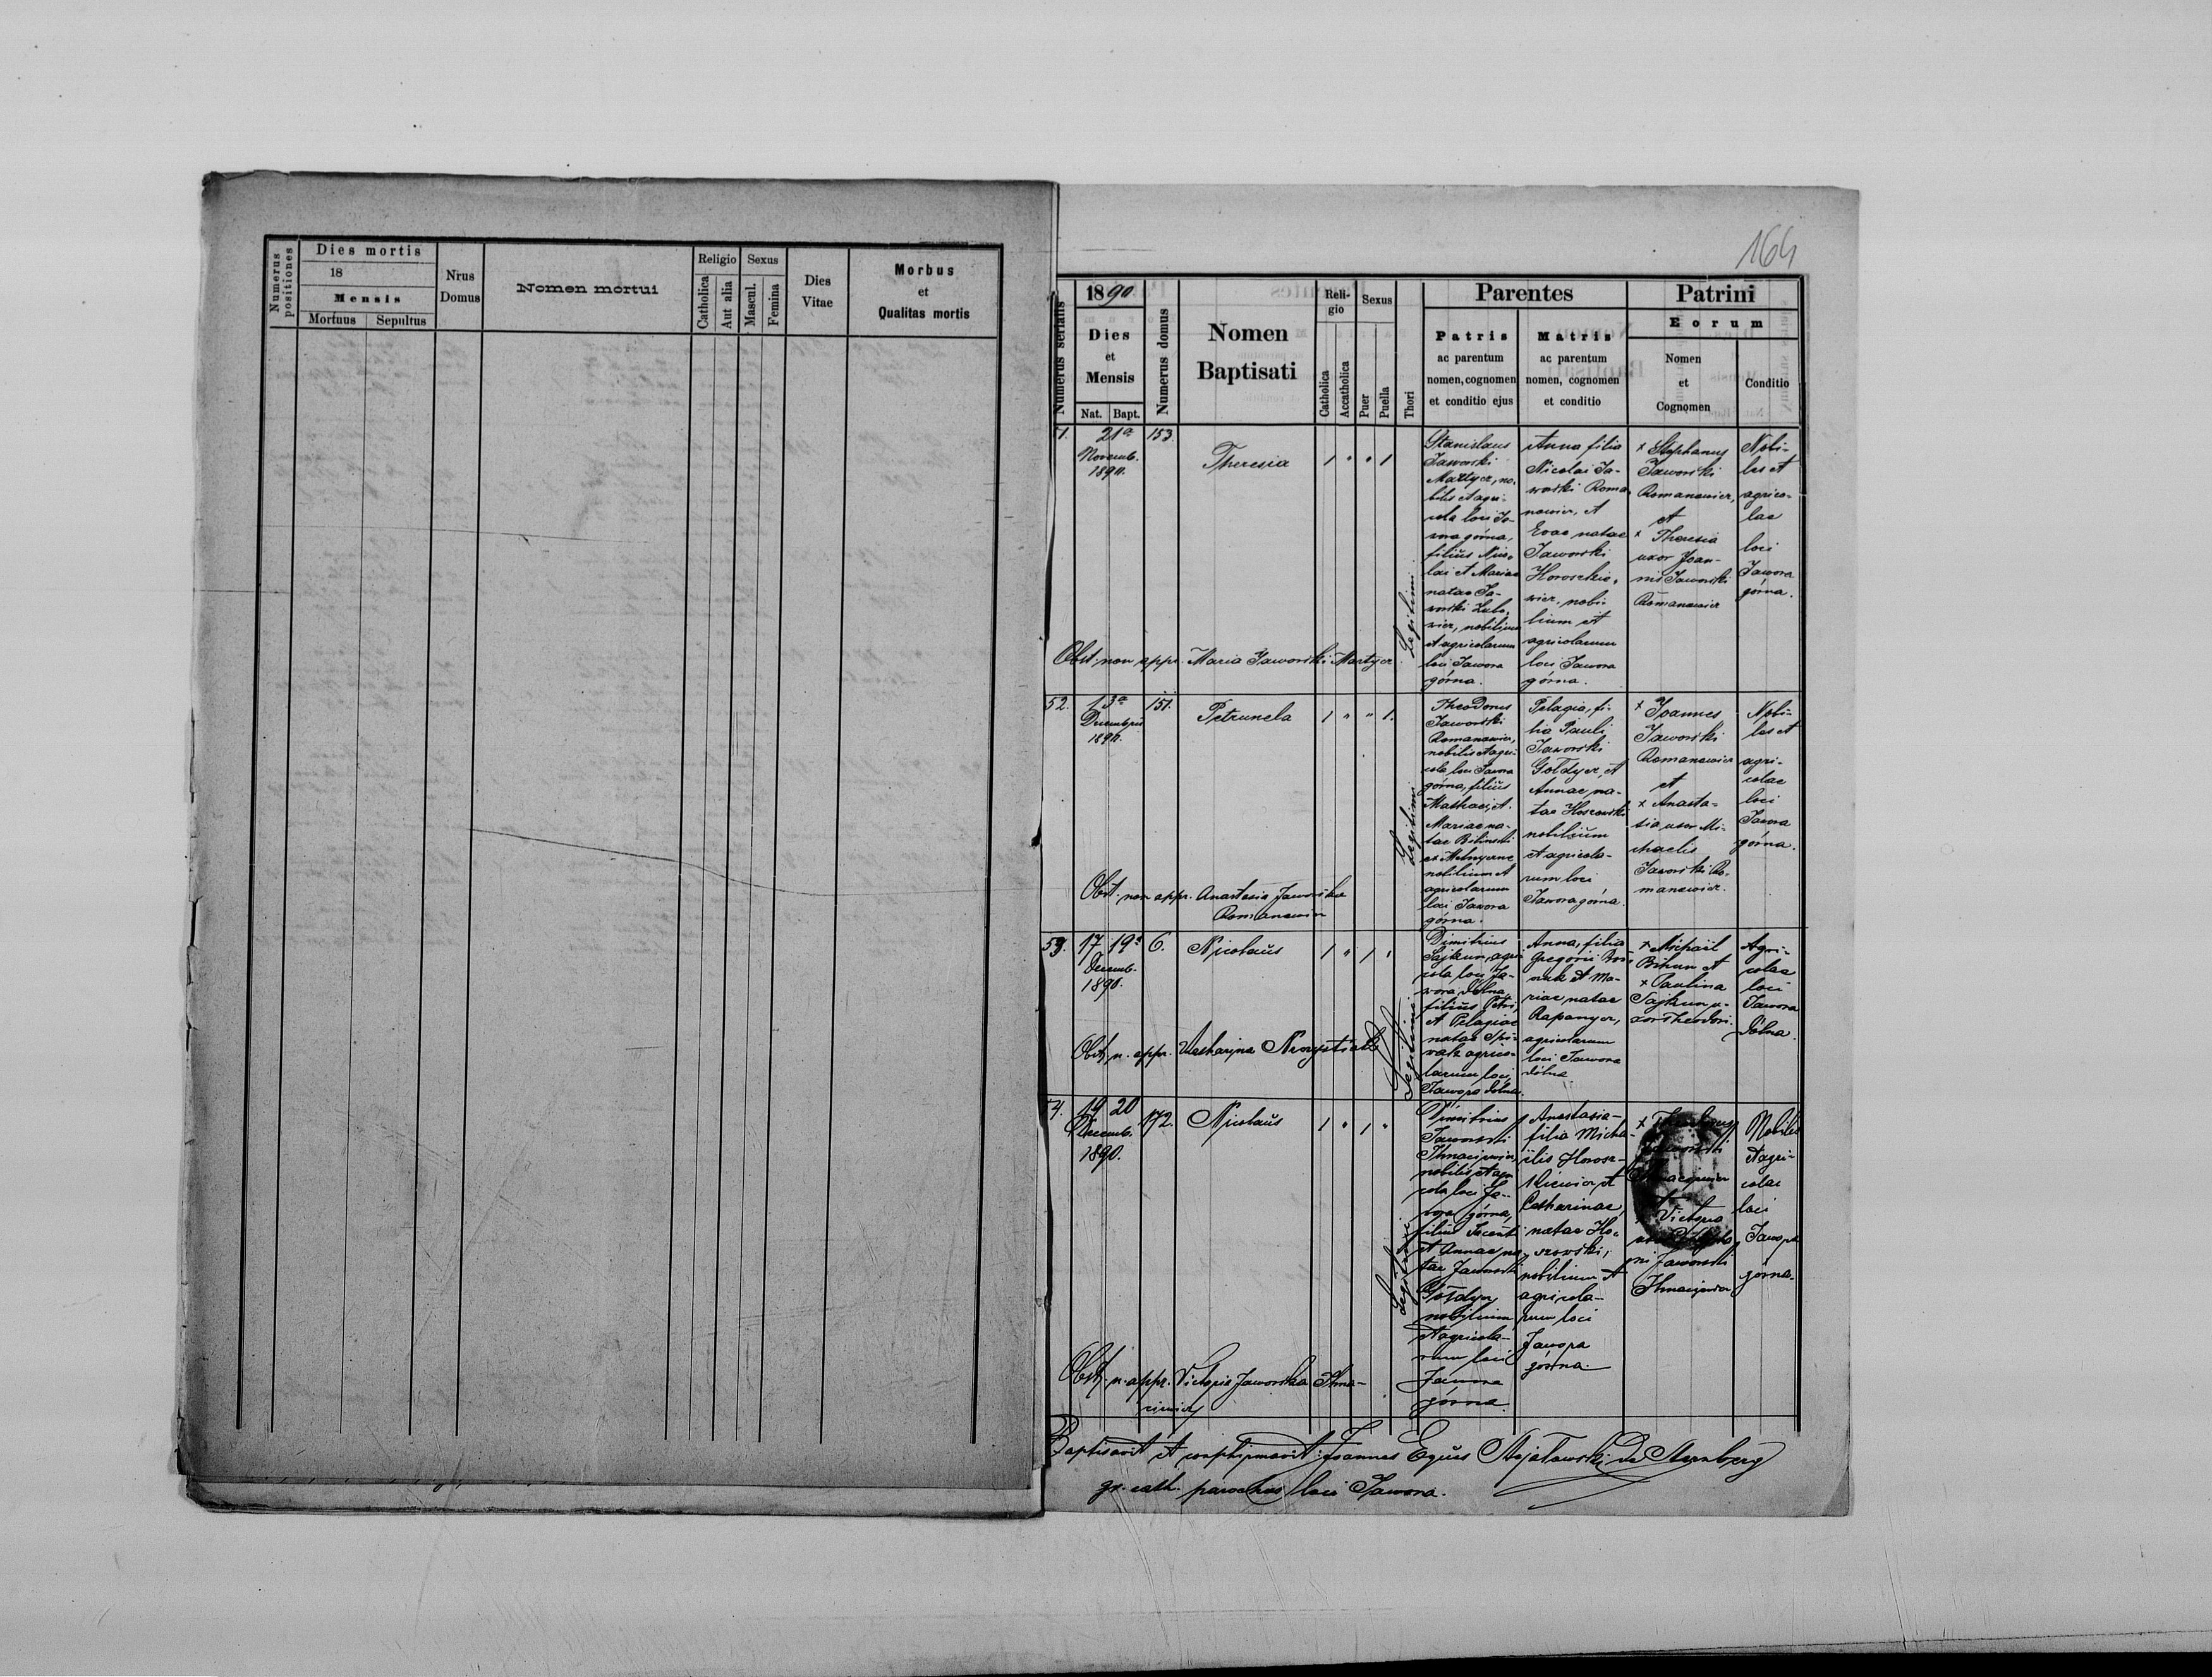 Numerus positiones
Dies mortis
18
Mensis
Mortuus Sepultus
Nrus Domus
Nomen mortui
Religio
Catholica
Aut alia
Sexus
Mascul.
Femina
Dies Vitae
Morbus
et
Qualitas mortis
164
Numerus serialis
1890
Dies
et
Mensis
Nat. Bapt.
Numerus domus
Nomen
Baptisati
Reli-
gio
Catholica
Accatholica
Sexus
Puer
Puella
Thori
Parentes
Patris
ac parentum
nomen, cognomen
et conditio ejus
Matris
ac parentum
nomen, cognomen
et conditio
Patrini
Eorum
Nomen
et
Cognomen
Conditio
1.
21a
Novemb.
1890.
153
Theresia
1 " " 1
Legitimi
Stanislaus
Jaworski
Martycz, no-
bilis et agri-
cola loci Ja-
wora górna,
filius Nico-
lai et Mariae
natae Ja-
worski Zubo-
wicz, nobilium
et agricolarum
loci Jawora
górna.
Anna filia
Nicolai Ja-
worski Roma-
nowicz, et
Evae natae
Jaworski
nobi-
lium et
agricolarum
loci Jawora
górna.
+ Stephanus
Jaworski
Romanowicz,
et
+ Theresia
uxor Joan-
nis Jaworski
Romanowicz
Nobi-
les et
agrico-
lae
loci
Jawora
górna.
Obst. non appr. Maria Jaworski Martycz
52.
13a
Decembris
1890.
151.
Petrunela
1 " " 1.
Legitimi
Theodorus
Jaworski
Romanowicz,
nobilis et agri-
cola loci Jawora
górna, filius
et
Mariae na-
tae Bilinski
nobilium et
agricolarum
loci Jawora
górna.
Pelagia, fi-
lia Pauli
Jaworski
Gołdycz, et
Annae na-
tae
nobilium
et agricola-
rum loci
Jawora górna.
+ Joannes
Jaworski
Romanowicz
et
+ Anasta-
sia uxor Mi-
chaelis
Jaworski Ro-
manowicz.
Nobi-
les et
agri-
colae
loci
Jawora
górna.
Obst. non appr. Anastasia Jaworska
Romanowicz
53.
17 19a
Decemb.
1890.
6.
Nicolaus
1 " 1 "
Legitimi
Dimitrius
Sajkun, agri-
cola loci Ja-
wora dolna,
filius Petri,
et Pelagiae
natae Spi-
wak agrico-
larum loci
Jawora dolna.
Anna, filia
Gregorii
et Ma-
riae natae
agricolarum
loci Jawora
dolna
+ Michail
Bihun et
+ Paulina
Sajkun u-
xor Theodori.
Agri-
colae
loci
Jawora
dolna.
Obst. n. appr.
4.
19 20
Decemb.
1890.
172.
Nicolaus
1 " 1 "
Dimitrius
Jaworski
nobilis et agri-
cola loci Ja-
wora górna,
filius
et Annae na-
tae Jaworski
Gołdycz
nobilium
et agricola-
rum loci
Jawora
górna.
Anastasia
filia Micha-
ilis
et
Catharinae,
natae
nobilium et
agricola-
rum loci
Jawora
górna.
Victoria
Jaworski
Nobiles
et agri-
colae
loci
Jawora
górna.
Obst. n. appr. Victoria Jaworska
Baptisavit et confirmavit: Joannes Eques Stojałowski de Sternberg
gr. cath. parochus loci Jawora.